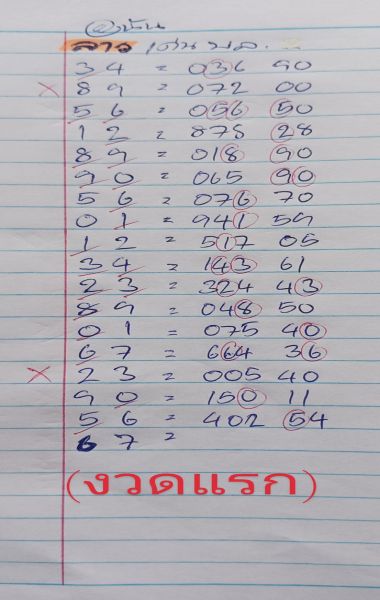 ลาว เด่น บ.ล.
34 = 036 90
× 89 = 072 00
56 = 056 50
12 = 875 28
89 = 018 90
90 = 065 90
56 = 076 70
01 = 941 59
12 = 517 05
34 = 143 61
23 = 324 43
89 = 048 50
01 = 075 40
67 = 664 36
× 23 = 005 40
90 = 150 11
56 = 402 54
67 =
(งวดแรก)